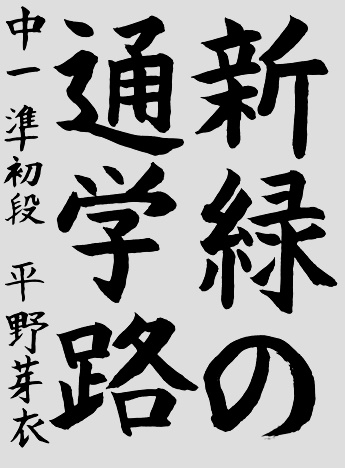 新緑の
通学路
中一 準初段 平野芽衣